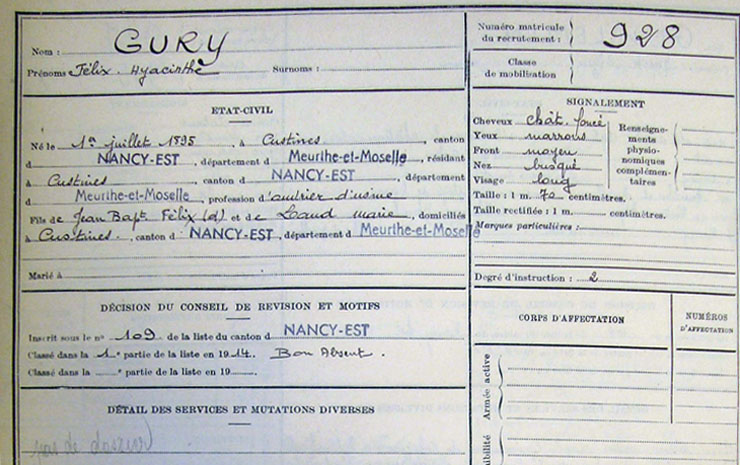 Nom : GURY
Prénoms Félix Hyacinthe Surnoms :
Numéro matricule du recrutement : 928
Classe de mobilisation
ETAT-CIVIL
Né le 1er juillet 1895, à Custines, canton
d NANCY-EST, département d Meurthe-et-Moselle, résidant
à Custines, canton d NANCY-EST, département
d Meurthe-et-Moselle, profession d'ouvrier d'usine
Fils de Jean Bapt Félix (d) et de Laud Marie, domiciliés
à Custines, canton d NANCY-EST, département d Meurthe-et-Moselle
Marié à
DÉCISION DU CONSEIL DE REVISION ET MOTIFS
Inscrit sous le no 109 de la liste du canton d NANCY-EST
Classé dans la 1e partie de la liste en 1914. Bon Absent.
Classé dans la e partie de la liste en 19
DÉTAIL DES SERVICES ET MUTATIONS DIVERSES
SIGNALEMENT
Cheveux chât. foncé
Yeux marrons
Front moyen
Nez busqué
Visage long
Renseignements physionomiques complémentaires
Taille : 1 m. 70 centimètres.
Taille rectifiée : 1 m. centimètres.
Marques particulières :
Degré d'instruction : 2
CORPS D'AFFECTATION
NUMÉROS D'AFFECTATION
Armée active